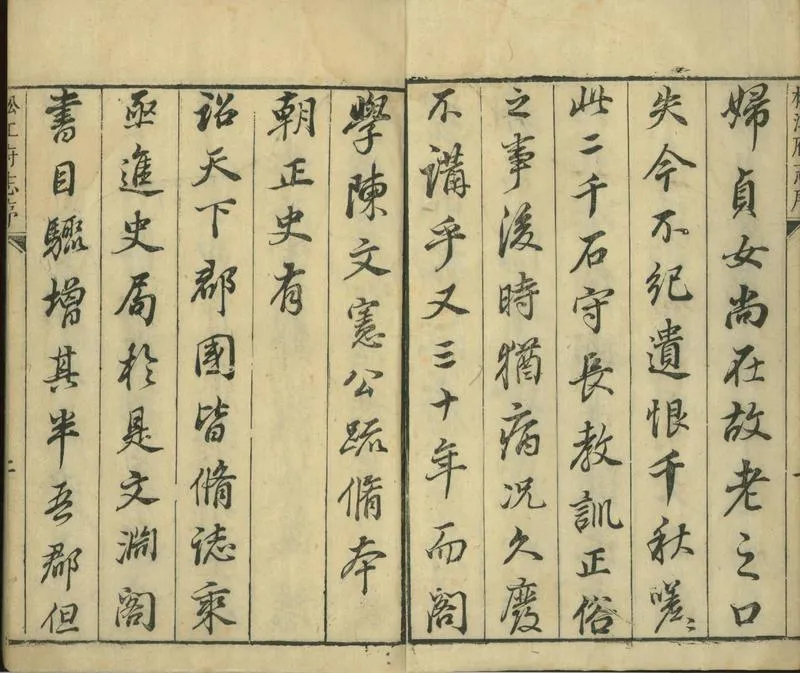 婦貞女尚在故老之口
失今不紀遺恨千秋嗟〻
此二千石守長教訓正俗
之事後時猶病况久廢
不講乎又三十年而閣
學陳文憲公疏脩本
朝正史有
詔天下郡國皆脩誌乘
亟進史局於是文淵閣
書目驟增其半吾郡但
松江府志序